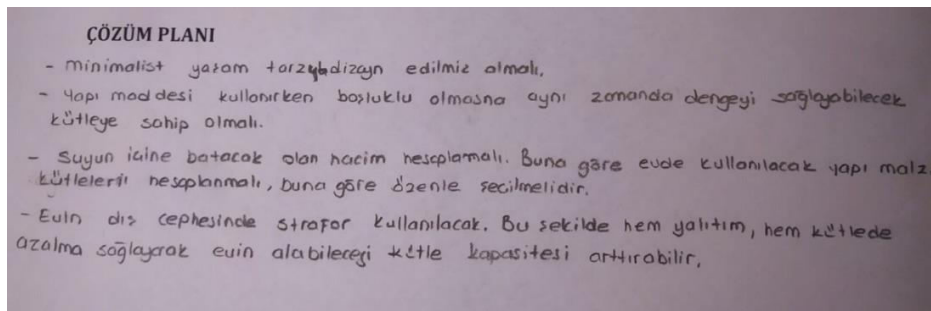 ÇÖZÜM PLANI
- minimalist yaşam tarzıyla dizayn edilmiş olmalı.
- Yapı maddesi kullanırken boşluklu olmasına aynı zamanda dengeyi sağlayabilecek
kütleye sahip olmalı.
- Suyun içine batacak olan hacim hesaplamalı. Buna göre evde kullanılacak yapı malz
kütleleri hesaplanmalı, buna göre özenle seçilmelidir.
- Evin dış cephesinde strafor kullanılacak. Bu şekilde hem yalıtım, hem kütlede
azalma sağlayarak evin alabileceği kütle kapasitesi arttırabilir.